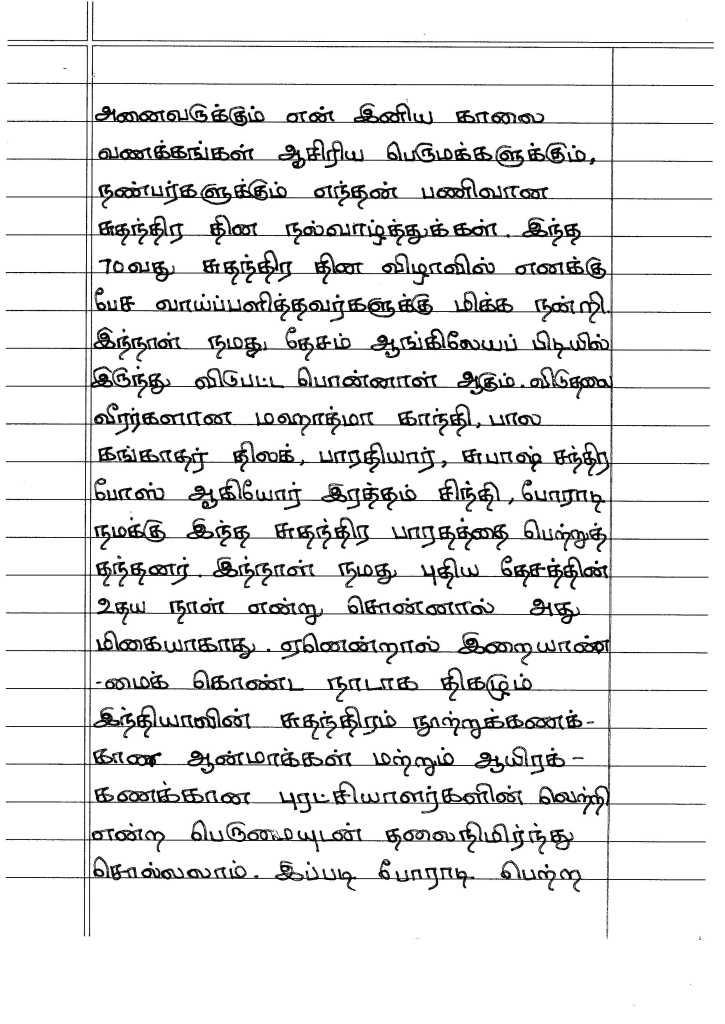 அனைவருக்கும் என் இனிய காலை
வணக்கங்கள் ஆசிரிய பெருமக்களுக்கும்,
நண்பர்களுக்கும் எந்தன் பணிவான
சுதந்திர தின நல்வாழ்த்துக்கள். இந்த
70வது சுதந்திர தின விழாவில் எனக்கு
பேச வாய்ப்பளித்தவர்களுக்கு மிக்க நன்றி.
இந்நாள் நமது தேசம் ஆங்கிலேயப் பிடியில்
இருந்து விடுபட்ட பொன்னாள் ஆகும். விடுதலை
வீரர்களான மஹாத்மா காந்தி, பால
கங்காதர் திலக், பாரதியார், சுபாஷ் சந்திர
போஸ் ஆகியோர் இரத்தம் சிந்தி, போராடி
நமக்கு இந்த சுதந்திர பாரதத்தை பெற்றுத்
தந்தனர். இந்நாள் நமது புதிய தேசத்தின்
உதய நாள் என்று சொன்னால் அது
மிகையாகாது. ஏனென்றால் இறையாண்
-மைக் கொண்ட நாடாக திகழும்
இந்தியாவின் சுதந்திரம் நூற்றுக்கணக்-
கான ஆன்மாக்கள் மற்றும் ஆயிரக்-
கணக்கான புரட்சியாளர்களின் வெற்றி
என்ற பெருமையுடன் தலைநிமிர்ந்து
சொல்லலாம். இப்படி போராடி பெற்ற